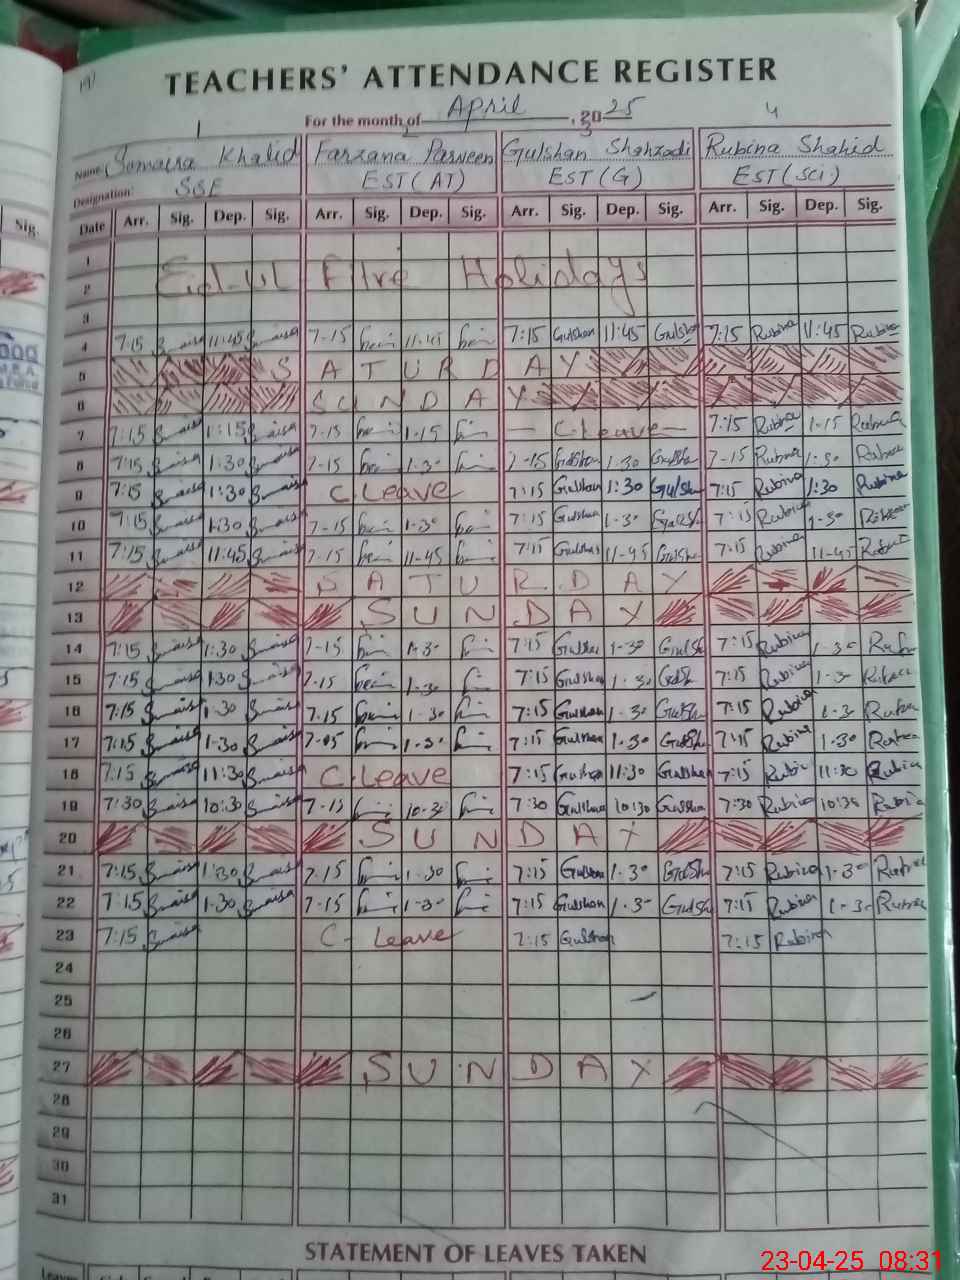 TEACHERS' ATTENDANCE REGISTER
For the month of April, 2025
1 2 3 4
Name: Somaira Khalid Farzana Parveen Gulshan Shahzadi Rubina Shahid
Designation: SSE EST(AT) EST(G) EST(SCi)
Date Arr. Sig. Dep. Sig. Arr. Sig. Dep. Sig. Arr. Sig. Dep. Sig. Arr. Sig. Dep. Sig.
1
2 Eid-ul Fitre Holidays
3
4 7:15 11:45 7-15 11-45 7:15 Gulshan 11:45 Gulshan 7:15 Rubina 11:45 Rubina
5 SATURDAY
6 SUNDAY
7 7:15 1:15 7-15 1-15 C.Leave 7:15 Rubina 1-15 Rubina
8 7:15 1:30 7-15 1-30 7-15 Gulshan 1:30 Gulsha 7-15 Rubina 1:30 Rubina
9 7:15 1:30 C.Leave 7:15 Gulshan 1:30 Gulsha 7:15 Rubina 1:30 Rubina
10 7:15 1:30 7-15 1-30 7:15 Gulshan 1-30 7:15 Rubina 1-30
11 7:15 11:45 7-15 11-45 7:15 Gulshan 11-45 Gulsha 7:15 Rubina 11-45
12 SATURDAY
13 SUNDAY
14 7:15 1:30 7-15 1-30 7:15 Gulsha 1-30 Gulsh 7:15 Rubina 1-30
15 7:15 1:30 7-15 1-30 7:15 Gulshan 1-30 7:15 Rubina 1-30
16 7:15 1-30 7-15 1-30 7:15 Gulshan 1-30 Gulsha 7:15 Rubina 1-30
17 7:15 1-30 1-30 7:15 Gulshan 1-30 Gulsha 7:15 Rubina 1-30
18 7:15 11:30 C.Leave 7:15 Gulshan 11:30 Gulshan 7:15 Rubi 11:30 Rubina
19 7:30 10:30 7-15 10-30 7:30 Gulshan 10:30 Gulshan 7:30 Rubina 10:30 Rubina
20 SUNDAY
21 7:15 1:30 7.15 1-30 7:15 Gulshan 1-30 Gulsha 7:15 Rubina 1-30 Rubina
22 7:15 1-30 7-15 1-30 7:15 Gulshan 1-30 Gulsha 7:15 Rubina 1-30 Rubina
23 7:15 C-Leave 7:15 Gulshan 7:15 Rubina
24
25
26
27 SUNDAY
28
29
30
31
STATEMENT OF LEAVES TAKEN
23-04-25 08:31